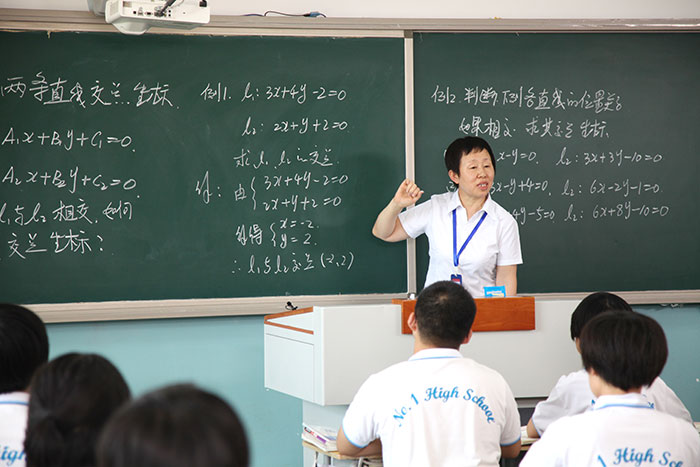 两条直线交点坐标
A₁x+B₁y+C₁=0
A₂x+B₂y+C₂=0.
l₁与l₂相交,如何
交点坐标?
例1. l₁: 3x+4y-2=0
l₂: 2x+y+2=0
求l₁, l₂的交点
解: 由{3x+4y-2=0
2x+y+2=0
解得{x=-2.
y=2.
∴ l₁与l₂交点(-2,2)
例2. 判断下列各直线的位置关系
如果相交, 求其交点坐标
x-y=0. l₂: 3x+3y-10=0
x-y+4=0. l₂: 6x-2y-1=0
4y-5=0 l₂: 6x+8y-10=0
No.1 High School
High School
1 High School